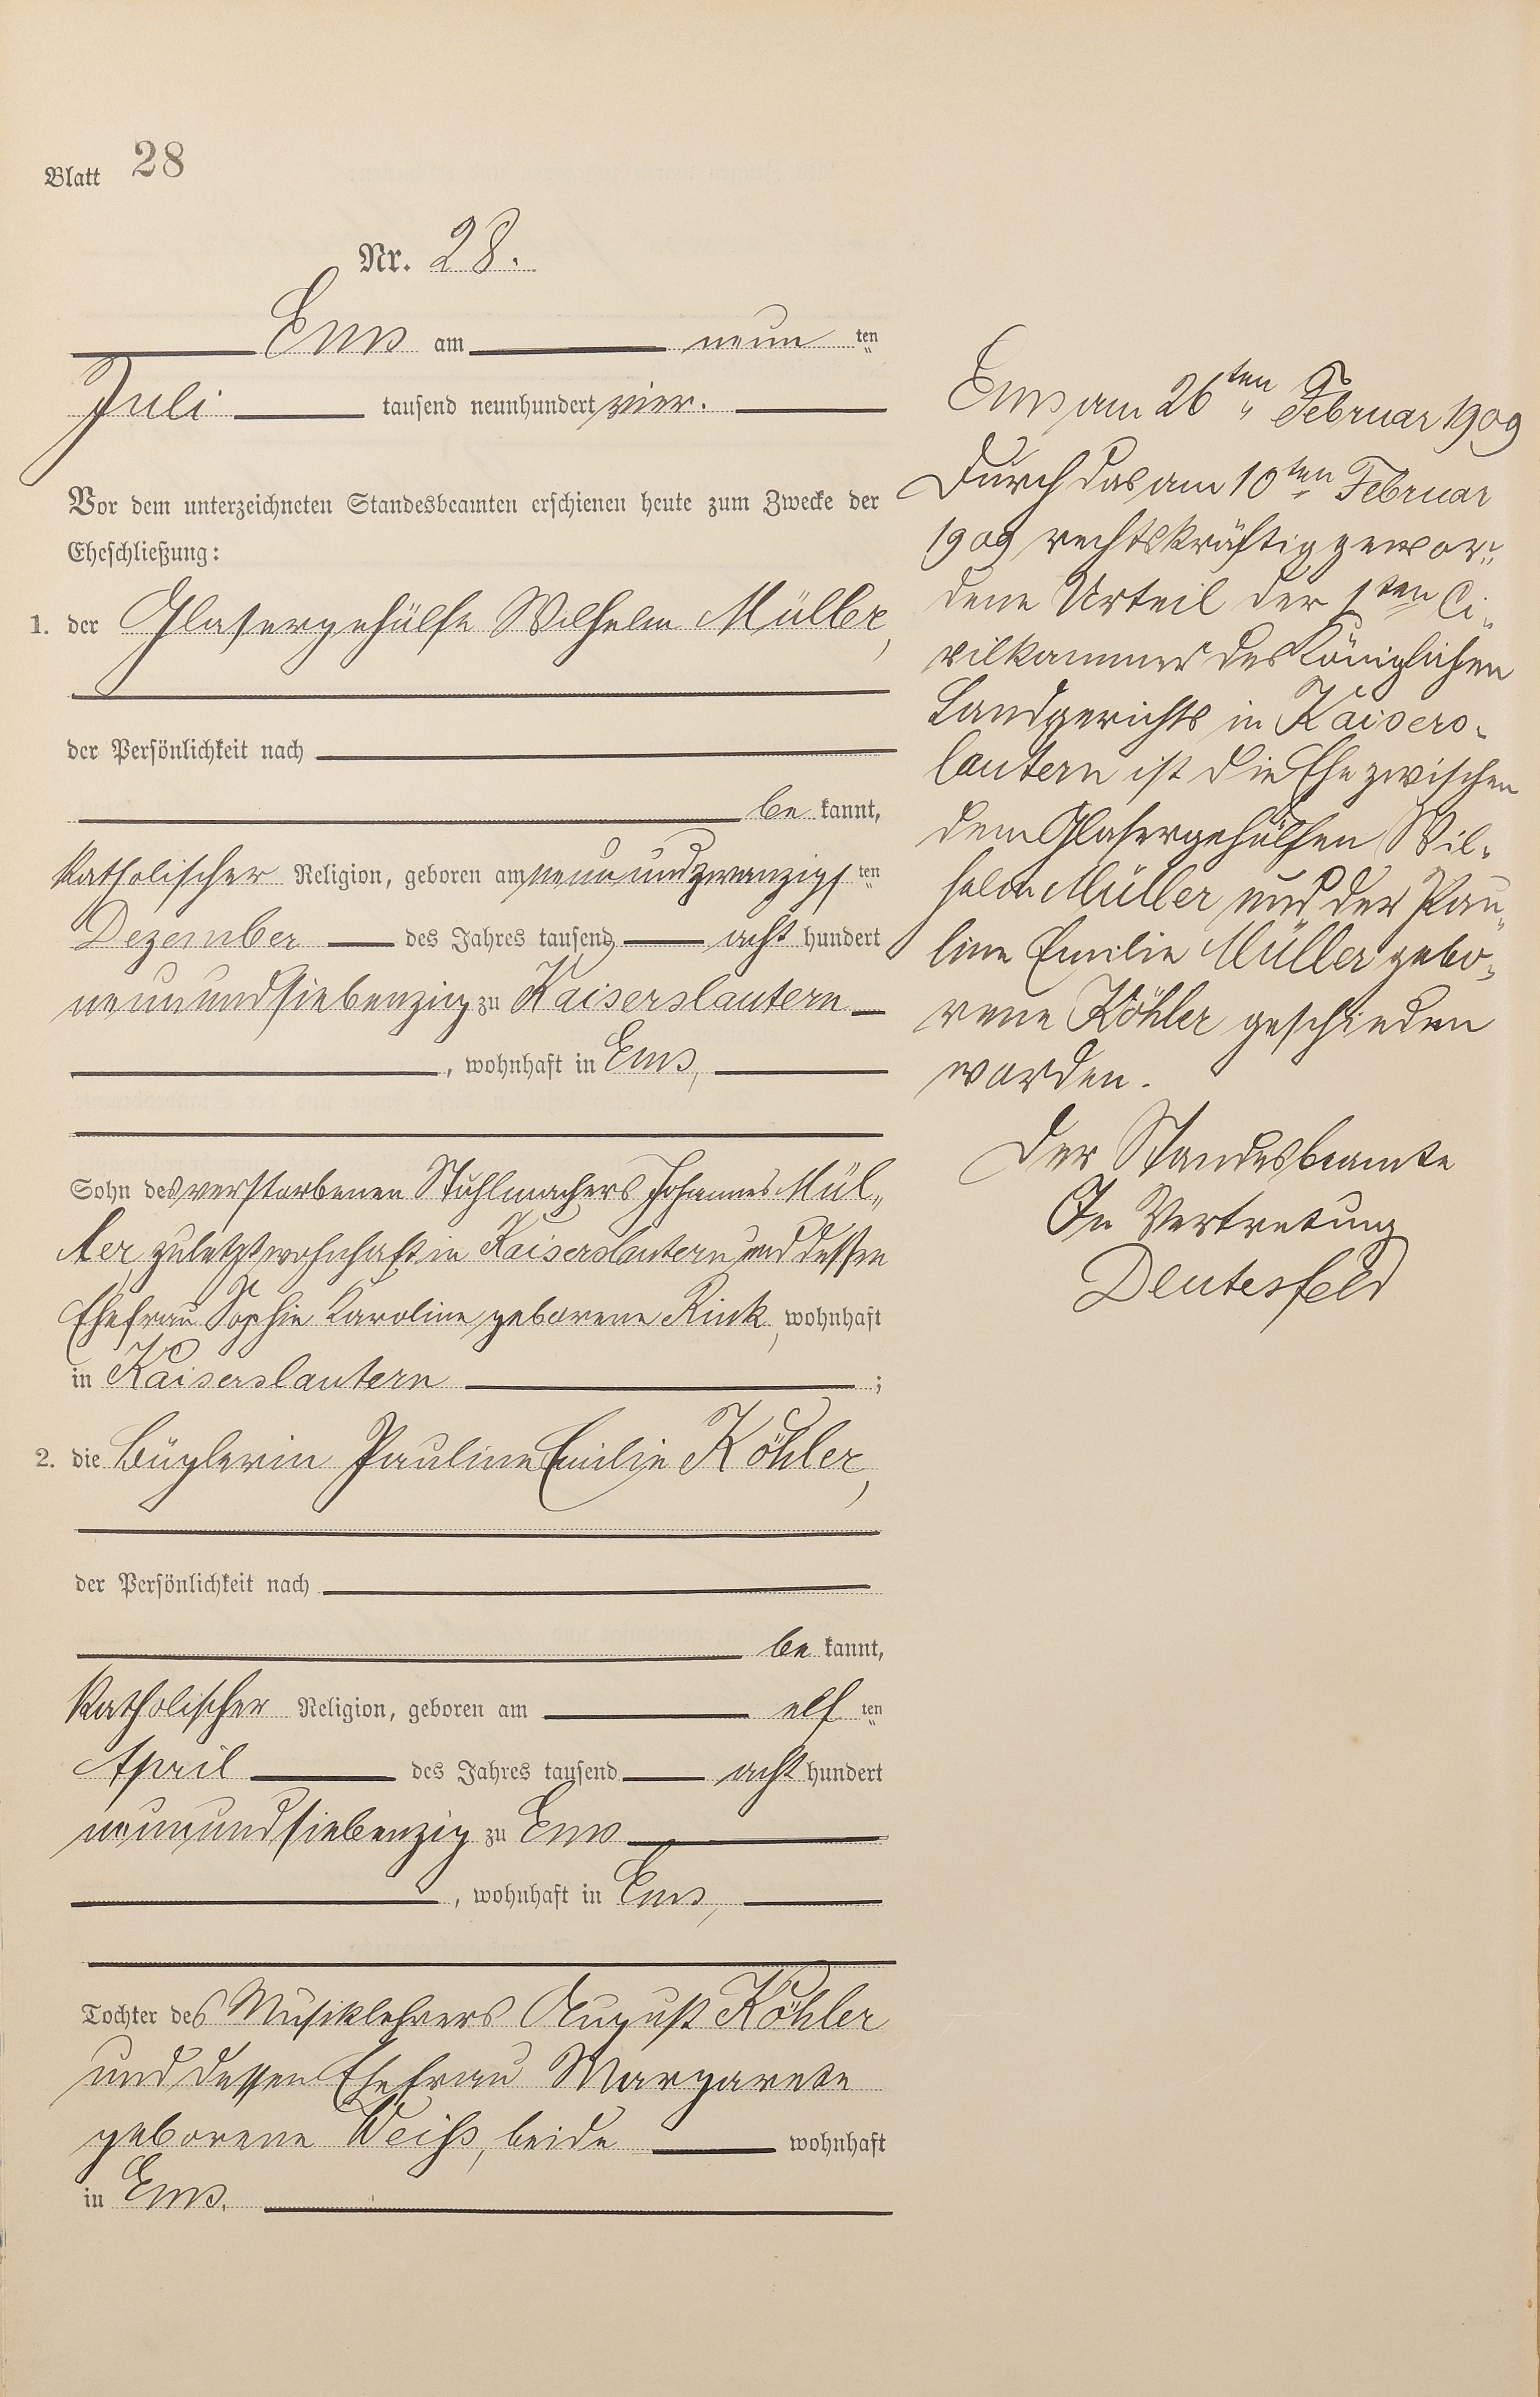 Blatt 28
Nr. 28.
Ems am neun ten
Juli tausend neunhundert vier.
Vor dem unterzeichneten Standesbeamten erschienen heute zum Zwecke der
Eheschließung:
1. der Glasergehülfe Wilhelm Müller,
der Persönlichkeit nach
be kannt,
katholischer Religion, geboren am neunundzwanzigs ten
Dezember des Jahres tausend acht hundert
neunundsiebenzig zu Kaiserslautern
, wohnhaft in Ems,
Sohn des verstorbenen Stuhlmachers Johannes Mül„
ler, zuletzt wohnhaft in Kaiserslautern und dessen
Ehefrau Sophie Karoline geborene Rink, wohnhaft
in Kaiserslautern ;
2. die Büglerin Pauline Emilie Köhler,
der Persönlichkeit nach
be kannt,
katholischer Religion, geboren am elf ten
April des Jahres tausend acht hundert
neunundsiebenzig zu Ems
, wohnhaft in Ems,
Tochter des Musiklehrers August Köhler
und dessen Ehefrau Margarete
geborene Weiß, beide wohnhaft
in Ems.
Ems am 26ten Februar 1909
Durch das am 10ten Februar
1909 rechtskräftig gewor„
dene Urteil der 1ten Ci„
vilkammer des Königlichen
Landgerichts in Kaisers„
lautern ist die Ehe zwischen
dem Glasergehülfen Wil„
helm Müller und der Pau„
line Emilie Müller gebo„
rene Köhler geschieden
worden.
Der Standesbeamte
In Vertretung
Deutesfeld